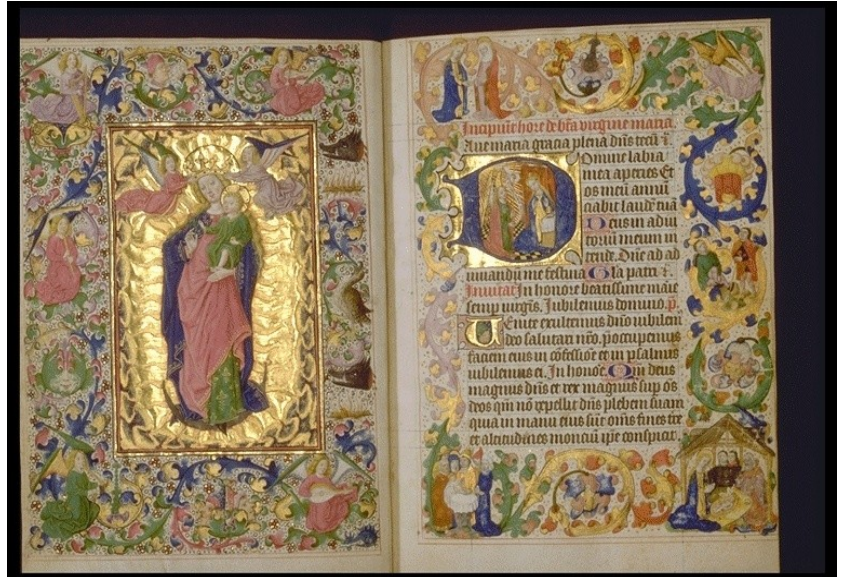 Incipiūt hore de bt̄a virgine maria.
Aue maria gracia plena dn̄s tecū ⁊.
Domine labia
mea aperies Et
os meū annū
ciabit laudē tuā
Deus in adiu
toriū meum in
tende. Dn̄e ad ad
iuuandū me festina Gl̄a patri ⁊.
Inuitat̄ In honore beatissime marie
semp̄ virgīs. Iubilemus domino. p̄.
Uenite exultemus dn̄o iubilem
deo salutari nr̄o. p̄occupemus
faciem eius in cōfessiōe et in psalmis
iubilemus ei. In honore. Qm̄ deus
magnus dn̄s et rex magnus sup̄ os
deos qm̄ nō repellit dn̄s plebem suam
quia in manu eius sūt om̄s fines tre
et altitudines monciū ip̄e conspicit.